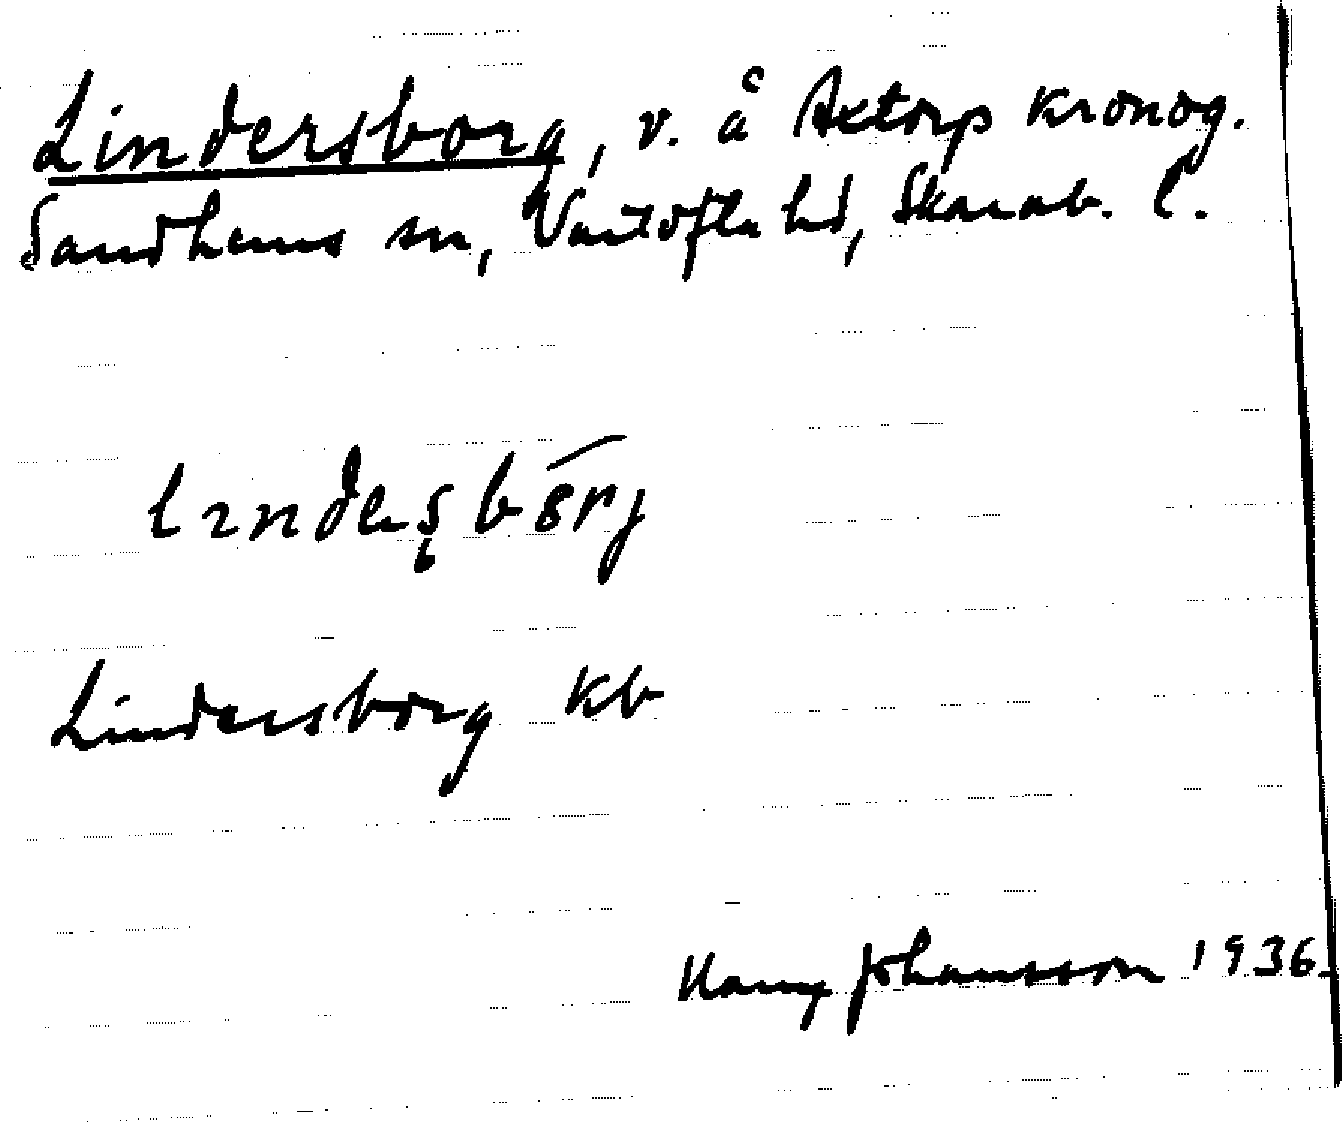 Lindersborg, v. å Axtorp kronog.
Sandhems sn, Vartofta hd, Skarab. l.
Lindersborg kb
Harry Johansson 1936.